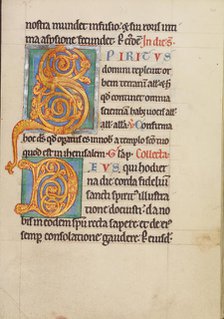 nostra mundet infusio & sui roris inti
ma aspersione fecundet. p̄ eiusdē. In die s̄
SPIRITUS
domini repleuit or
bem terrarum all'a &
qđ continet omnia
scientiā habet uocis all'a
all'a all'a. ps Confirma
hoc dē qđ operatus es in nob̄ a templo scō tuo
quod est in iherusalem. G̅ Collecta
DEVS qui hodier
na die corda fidelium
sancti spiritus illustra
tione docuisti. da no
bis in eodem spiritu recta sapere et de ei'
semp consolatione gaudere. p̄ eiusd̄.